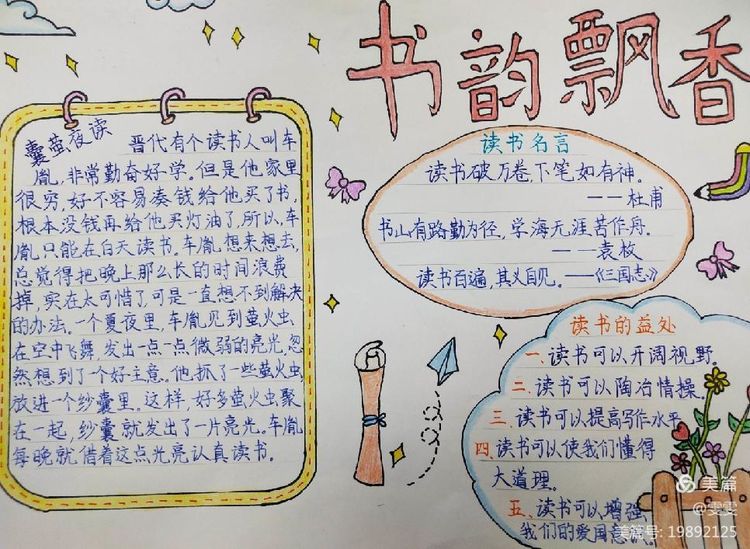 书韵飘香
囊萤夜读
晋代有个读书人叫车
胤,非常勤奋好学。但是他家里
很穷,好不容易凑钱给他买了书,
根本没钱再给他买灯油了,所以,车
胤只能在白天读书。车胤想来想去,
总觉得把晚上那么长的时间浪费
掉,实在太可惜了,可是一直想不到解决
的办法。一个夏夜里,车胤见到萤火虫
在空中飞舞,发出一点一点微弱的亮光,忽
然想到了个好主意。他抓了一些萤火虫
放进一个纱囊里。这样,好多萤火虫聚
在一起,纱囊就发出了一片亮光。车胤
每晚就借着这点光亮认真读书。
读书名言
读书破万卷,下笔如有神。
——杜甫
书山有路勤为径,学海无涯苦作舟。
——袁枚
读书百遍,其义自见。——《三国志》
读书的益处
一、读书可以开阔视野。
二、读书可以陶冶情操。
三、读书可以提高写作水平
四、读书可以使我们懂得
大道理。
五、读书可以增强
我们的爱国意
美篇
@雯雯
美篇号: 19892125